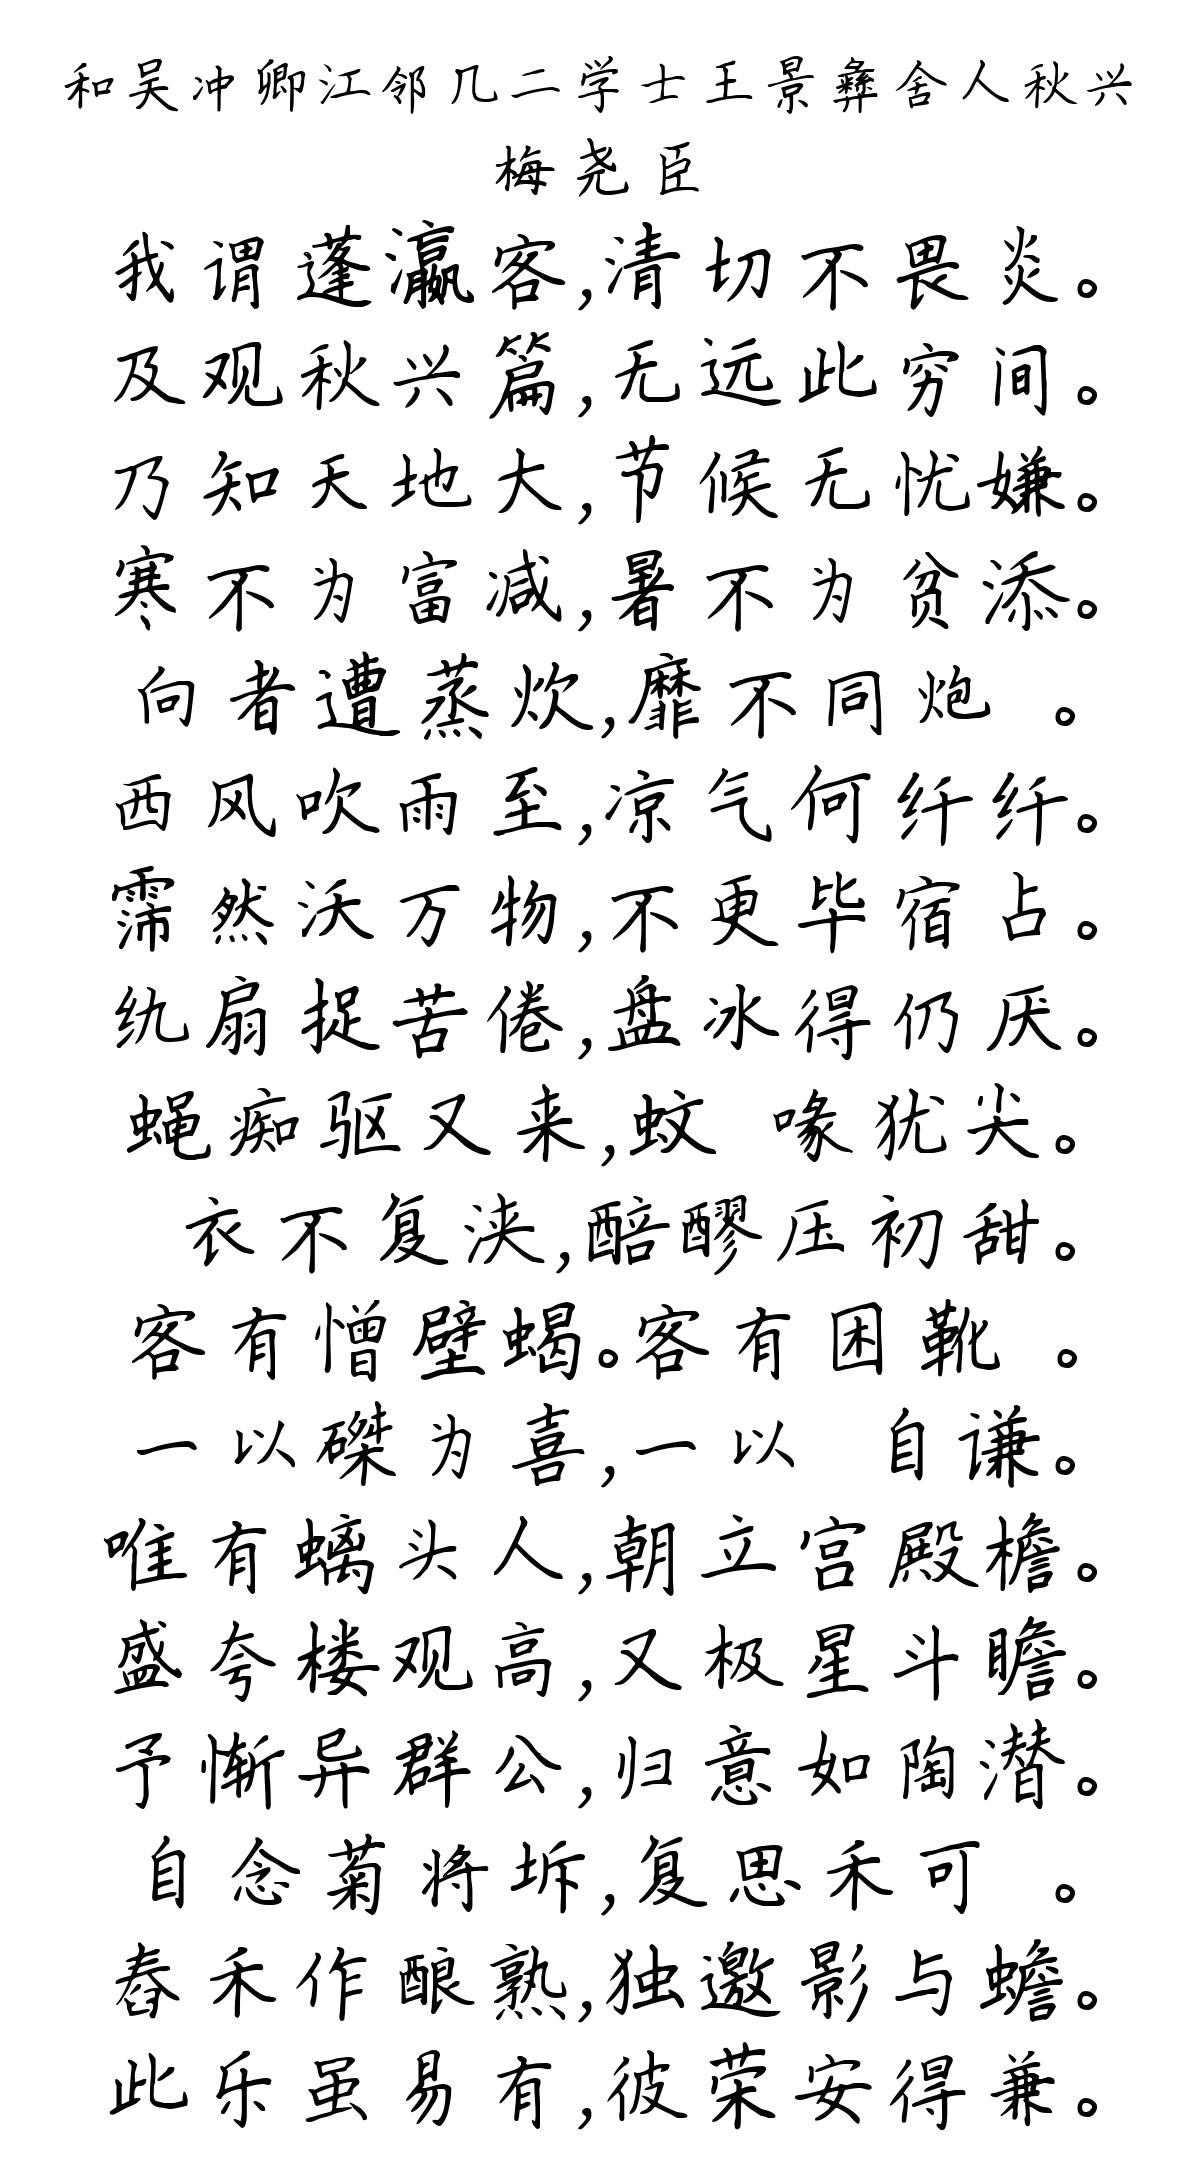 和吴冲卿江邻几二学士王景彝舍人秋兴
梅尧臣
我谓蓬瀛客,清切不畏炎。
及观秋兴篇,无远此穷间。
乃知天地大,节候无忧嫌。
寒不为富减,暑不为贫添。
向者遭蒸炊,靡不同炮 。
西风吹雨至,凉气何纤纤。
霈然沃万物,不更毕宿占。
纨扇捉苦倦,盘冰得仍厌。
蝇痴驱又来,蚊 喙犹尖。
衣不复浃,醅醪压初甜。
客有憎壁蝎。客有困靴 。
一以磔为喜,一以 自谦。
唯有螭头人,朝立宫殿檐。
盛夸楼观高,又极星斗瞻。
予惭异群公,归意如陶潜。
自念菊将坼,复思禾可 。
舂禾作酿熟,独邀影与蟾。
此乐虽易有,彼荣安得兼。